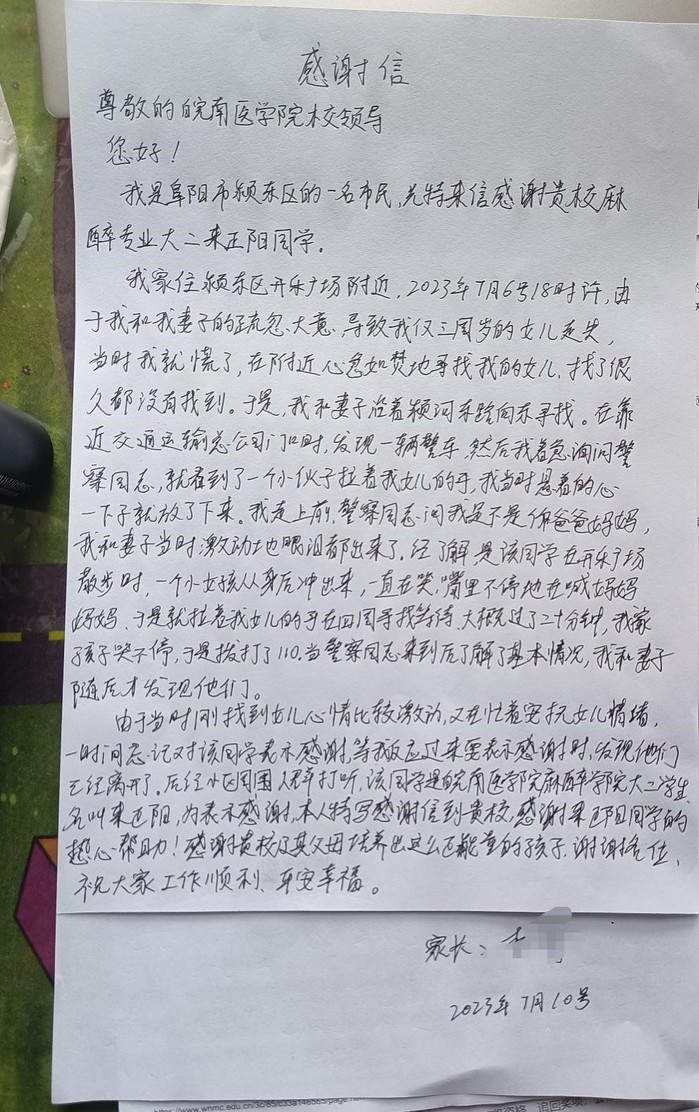 感谢信
尊敬的皖南医学院校领导
您好！
我是阜阳市颍东区的一名市民，先特来信感谢贵校麻
醉专业大二来正阳同学。
我家住颍东区开乐广场附近，2023年7月6号18时许，由
于我和我妻子的疏忽、大意，导致我仅三周岁的女儿走失，
当时我就慌了，在附近心急如焚地寻找我的女儿，找了很
久都没有找到。于是，我和妻子沿着颍河东路向东寻找。在靠
近交通运输总公司门口时，发现一辆警车，然后我着急询问警
察同志，就看到了一个小伙子拉着我女儿的手，我当时悬着的心
一下子就放了下来。我走上前，警察同志问我是不是你爸爸妈妈，
我和妻子当时激动地眼泪都出来了。经了解是该同学在开乐广场
散步时，一个小女孩从身后冲出来，一直在哭，嘴里不停地在喊妈妈
妈妈，于是就拉着我女儿的手在四周寻找等待，大概过了二十分钟，我家
孩子哭不停，于是拨打了110。当警察同志来到后了解了基本情况，我和妻子
随后才发现他们。
由于当时刚找到女儿心情比较激动，又在忙着安抚女儿情绪，
一时间忘记对该同学表示感谢，等我反应过来要表示感谢时，发现他们
已经离开了。后经小区周围人群打听，该同学是皖南医学院麻醉学院大二学生
名叫来正阳，为表示感谢，本人特写感谢信到贵校，感谢来正阳同学的
热心帮助！感谢贵校及其父母培养出这么正能量的孩子，谢谢各位，
祝大家工作顺利、平安幸福。
家长：
2023年7月10号
www.wnmc.edu.cn/3b/85/c33a146565/page.h